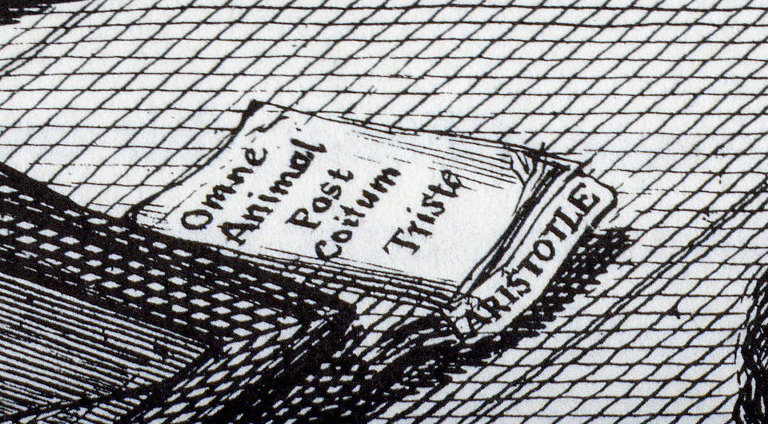 Omne
Animal
Post
Coitum
Triste
ARISTOTLE